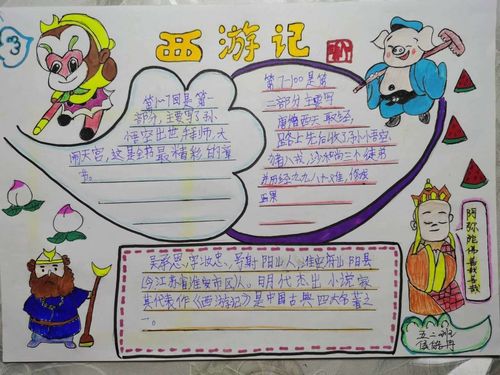 3
西游记
第1~7回是第一
部分,主要写了孙
悟空出世,拜师,大
闹天宫,这是全书最精彩的章
节。
第7-100是第
二部分主要写
唐僧西天取经,
路上先后收了孙悟空,
猪八戒,沙和尚三个徒弟
并历经九九八十一难,修成
正果
吴承恩,字汝忠、号射阳山人,淮安府山阳县
今江苏省淮安市区人。明代杰出小说家
其代表作《西游记》是中国古典四大名著之
一。
阿弥陀佛善哉善哉
五二班